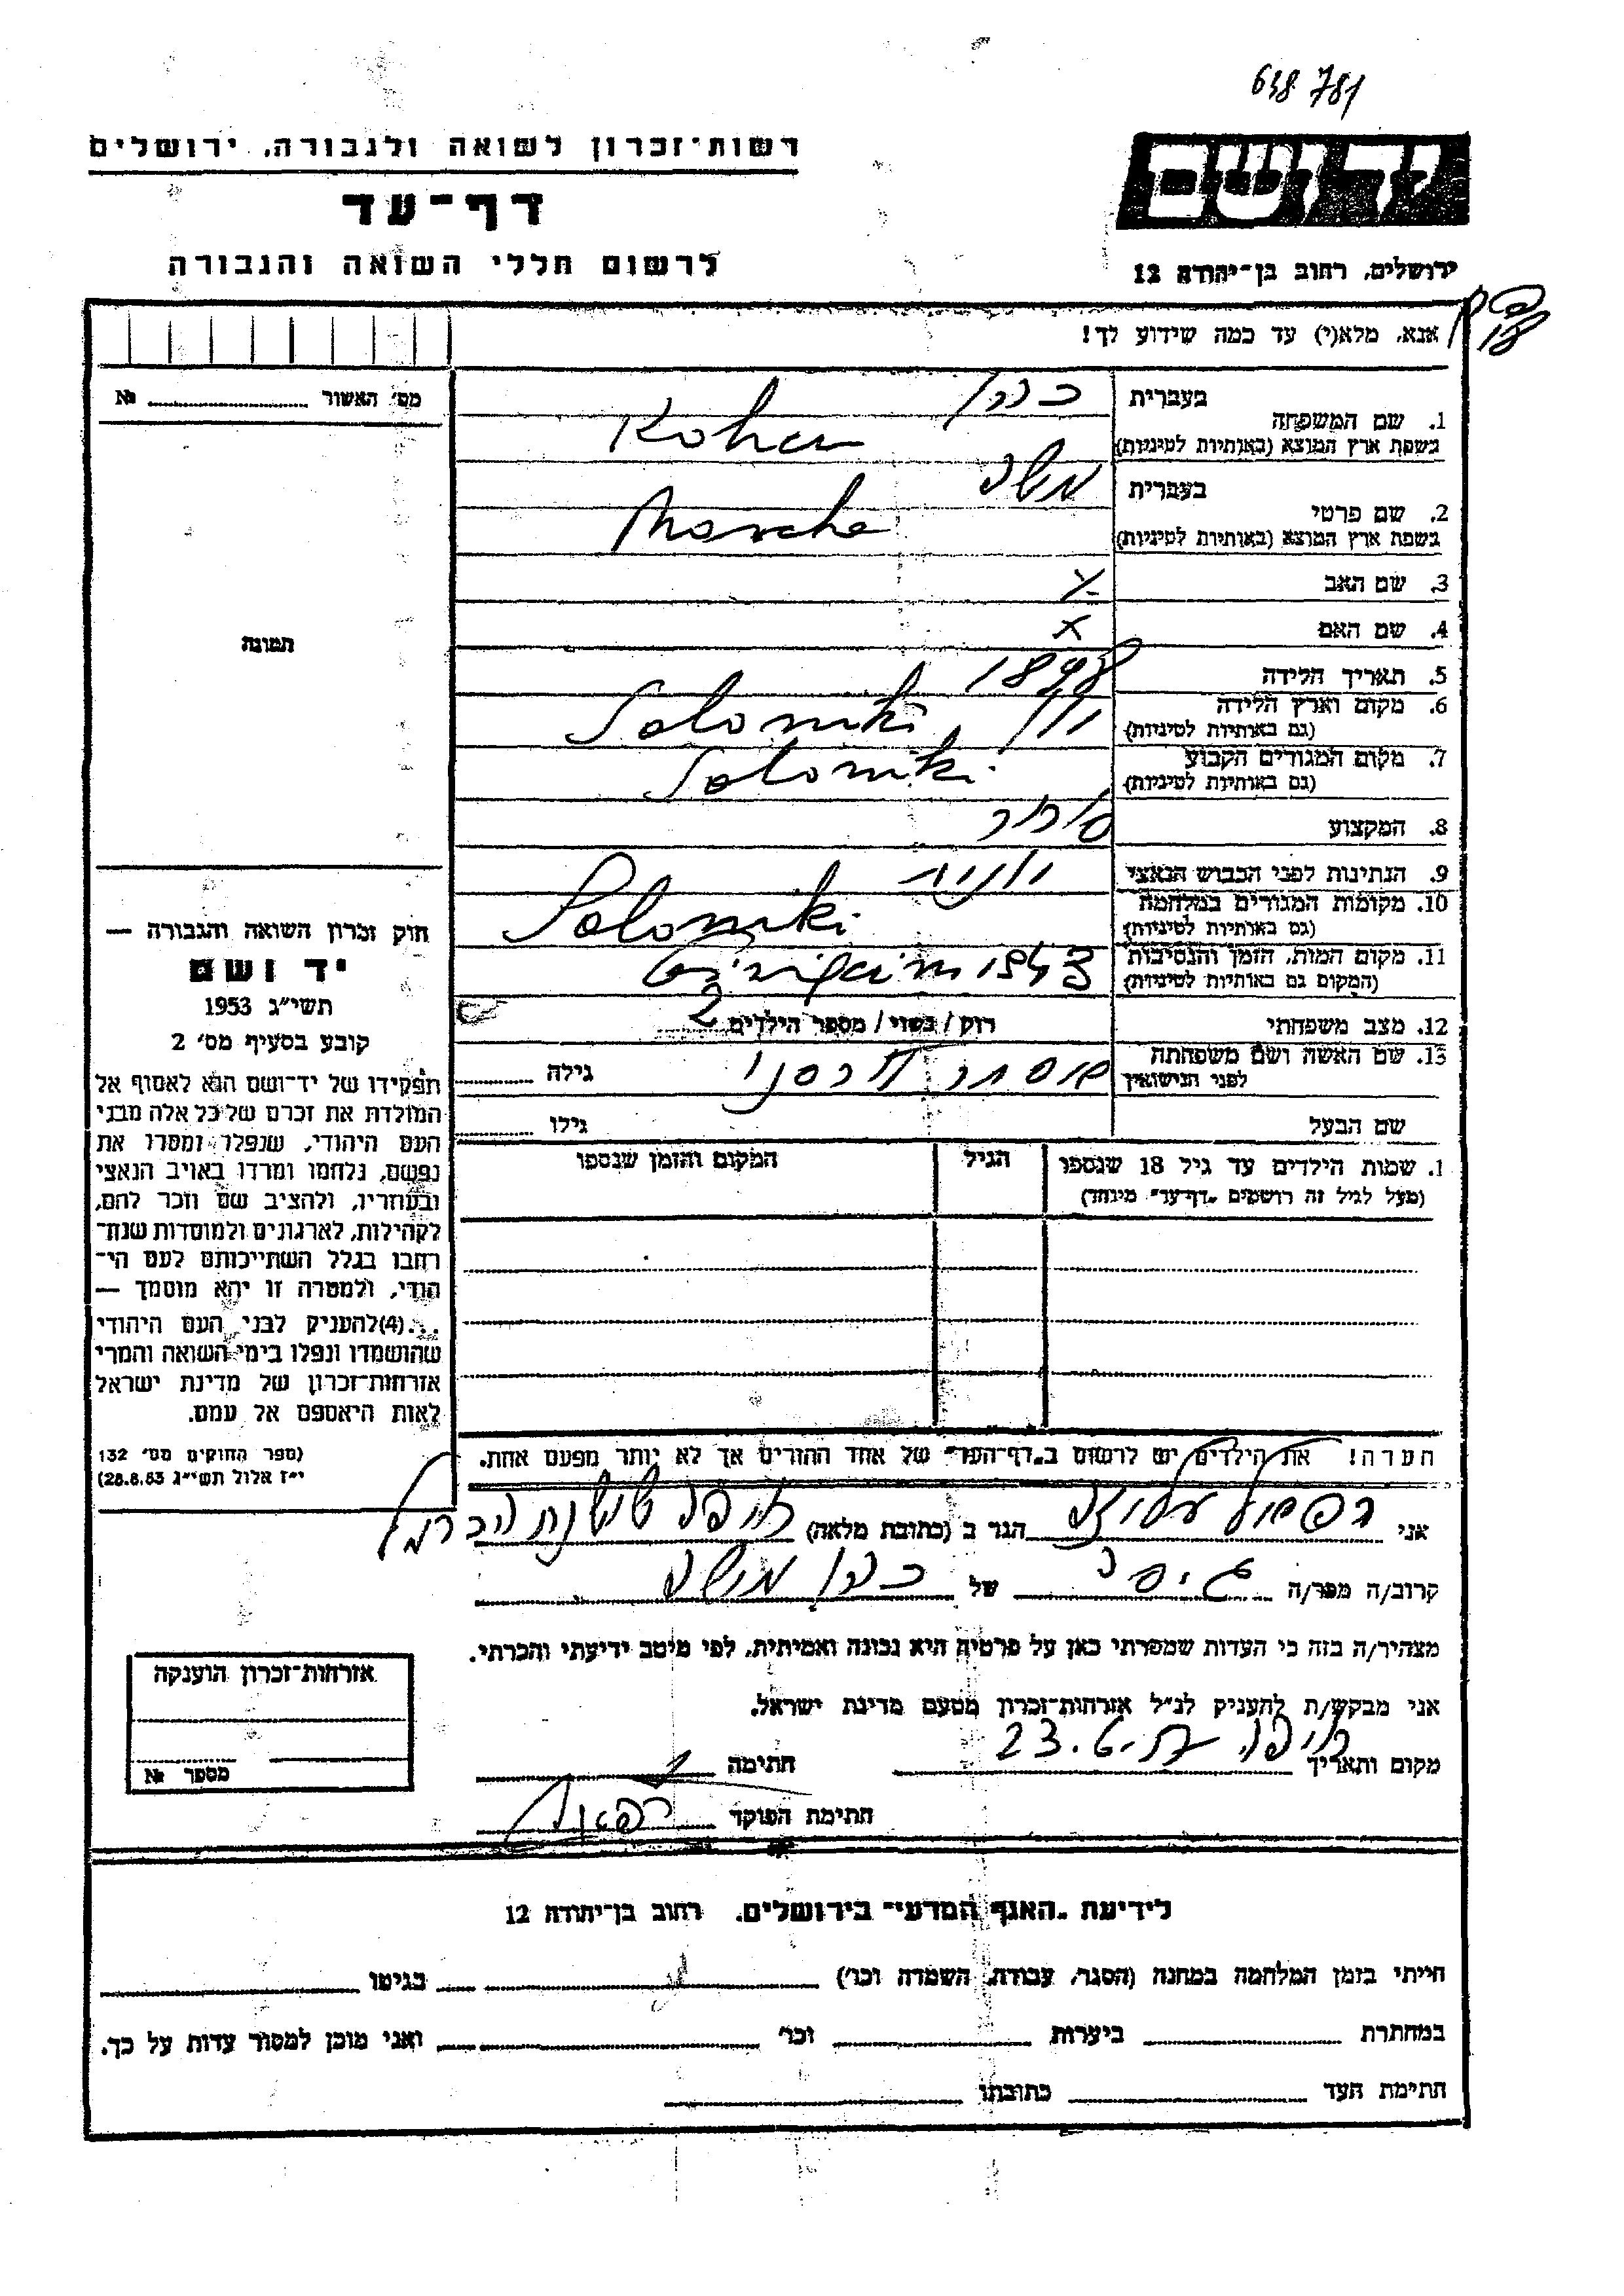 638781
רשות־זכרון לשואה ולגבורה, ירושלים
דף־עד
לרשום חללי השואה והגבורה
ידושם
ירושלים, רחוב בן־יהודה 12
אנא, מלא(י) עד כמה שידוע לך!
מס׳ האשור № 
1. שם המשפחה בעברית כהן
בשפת ארץ המוצא (באותיות לטיניות) Kohen
2. שם פרטי בעברית משה
בשפת ארץ המוצא (באותיות לטיניות) Mosche
3. שם האב X
4. שם האם X
5. תאריך הלידה 1898
6. מקום וארץ הלידה יוון Saloniki
(גם באותיות לטיניות)
7. מקום המגורים הקבוע Saloniki
(גם באותיות לטיניות)
8. המקצוע סוחר
9. הנתינות לפני הכבוש הנאצי יוונית
10. מקומות המגורים במלחמה Saloniki
(גם באותיות לטיניות)
11. מקום המות, הזמן והנסיבות 1943
(המקום גם באותיות לטיניות)
12. מצב משפחתי רוק / נשוי / מספר הילדים 2
13. שם האשה ושם משפחתה
לפני הנישואין אסתר גילה
שם הבעל גילו
1. שמות הילדים עד גיל 18 שנספו הגיל המקום והזמן שנספו
(מעל לגיל זה רושמים „דף־עד״ מיוחד)
הערה! את הילדים יש לרשום ב„דף־העד״ של אחד ההורים אך לא יותר מפעם אחת.
תמונה
חוק זכרון השואה והגבורה —
יד ושם
תשי״ג 1953
קובע בסעיף מס׳ 2
תפקידו של יד־ושם הוא לאסוף אל
המולדת את זכרם של כל אלה מבני
העם היהודי, שנפלו ומסרו את
נפשם, נלחמו ומרדו באויב הנאצי
ובעוזריו, ולהציב שם וזכר להם,
לקהילות, לארגונים ולמוסדות שנח־
רחבו בגלל השתייכותם לעם הי־
הודי, ולמטרה זו יהא מוסמך —
...(4)להעניק לבני העם היהודי
שהושמדו ונפלו בימי השואה והמרי
אזרחות־זכרון של מדינת ישראל
לאות היאספם אל עמם.
(ספר החוקים מס׳ 132
י״ז אלול תשי״ג 28.8.53)
אני רפאל הגר ב (כתובת מלאה) חיפה הכרמל
קרוב/ה מפר/ה גיסה של כהן משה
מצהיר/ה בזה כי העדות שמסרתי כאן על פרטיה היא נכונה ואמיתית, לפי מיטב ידיעתי והכרתי.
אני מבקש/ת להעניק לנ״ל אזרחות־זכרון מטעם מדינת ישראל.
מקום ותאריך חיפה 23.6.57 חתימה
חתימת הפוקד
אזרחות־זכרון הוענקה
מספר №
לידיעת „האגף המדעי״ בירושלים, רחוב בן־יהודה 12
הייתי בזמן המלחמה במחנה (הסגר, עבודה, השמדה וכו׳) בגיטו
במחתרת ביערות וכו׳ ואני מוכן למסור עדות על כך.
חתימת העד כתובתו